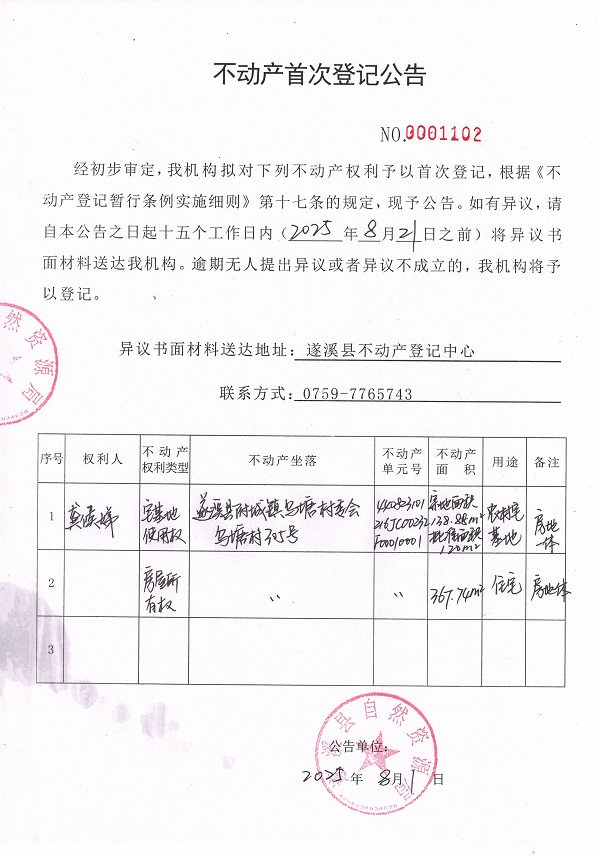 不动产首次登记公告
NO.0001102
经初步审定，我机构拟对下列不动产权利予以首次登记，根据《不
动产登记暂行条例实施细则》第十七条的规定，现予公告。如有异议，请
自本公告之日起十五个工作日内（2025年8月21日之前）将异议书
面材料送达我机构。逾期无人提出异议或者异议不成立的，我机构将予
以登记。
异议书面材料送达地址：遂溪县不动产登记中心
联系方式：0759-7765743
序号 权利人 不动产权利类型 不动产坐落 不动产单元号 不动产面积 用途 备注
1 宅基地使用权 遂溪县附城镇乌塘村委会乌塘村305号 440823101216JC00232F00010001 宗地面积138.88m² 批准面积120m² 农村宅基地 房地一体
2 房屋所有权 〃 〃 367.74m² 住宅 房地一体
3
公告单位：
2025年8月1日
遂溪县自然资源局
然资源局